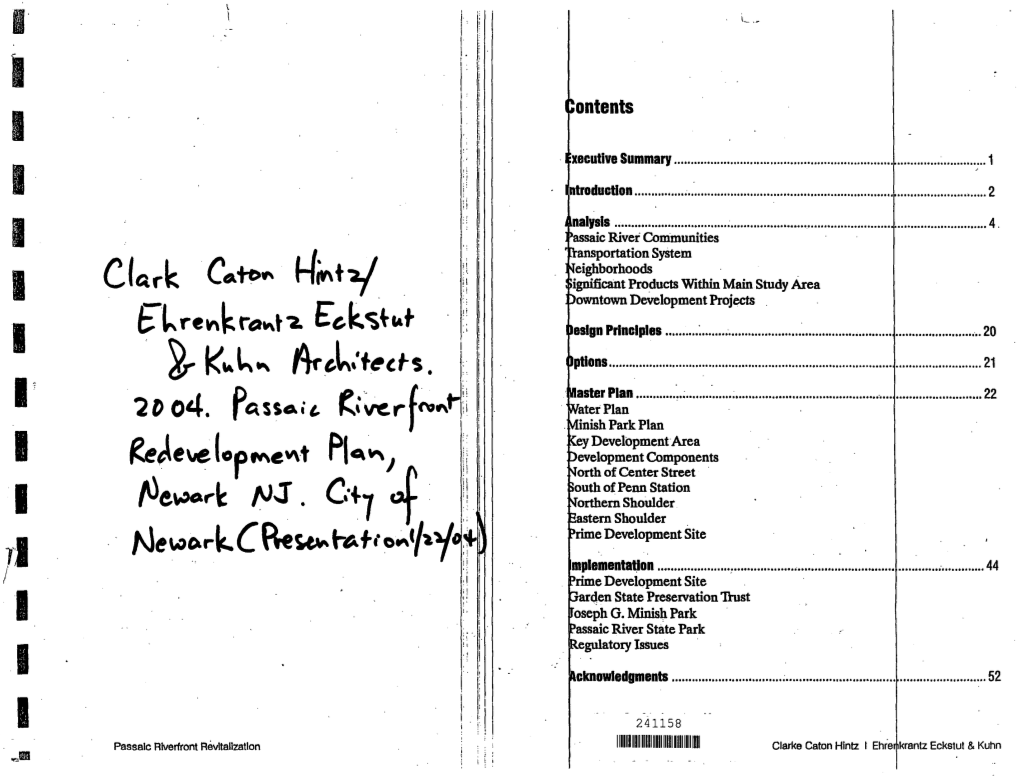 Clark Caton Hintz/
Ehrenkrantz Eckstut
& Kuhn Architects.
2004. Passaic Riverfront
Redevelopment Plan,
Newark NJ. City of
Newark (Presentation 1/22/04)
Passaic Riverfront Revitalization
Contents
Executive Summary ........ 1
Introduction ........ 2
Analysis ........ 4
Passaic River Communities
Transportation System
Neighborhoods
Significant Products Within Main Study Area
Downtown Development Projects
Design Principles ........ 20
Options ........ 21
Master Plan ........ 22
Water Plan
Minish Park Plan
Key Development Area
Development Components
North of Center Street
South of Penn Station
Northern Shoulder
Eastern Shoulder
Prime Development Site
Implementation ........ 44
Prime Development Site
Garden State Preservation Trust
Joseph G. Minish Park
Passaic River State Park
Regulatory Issues
Acknowledgments ........ 52
241158
Clarke Caton Hintz | Ehrenkrantz Eckstut & Kuhn